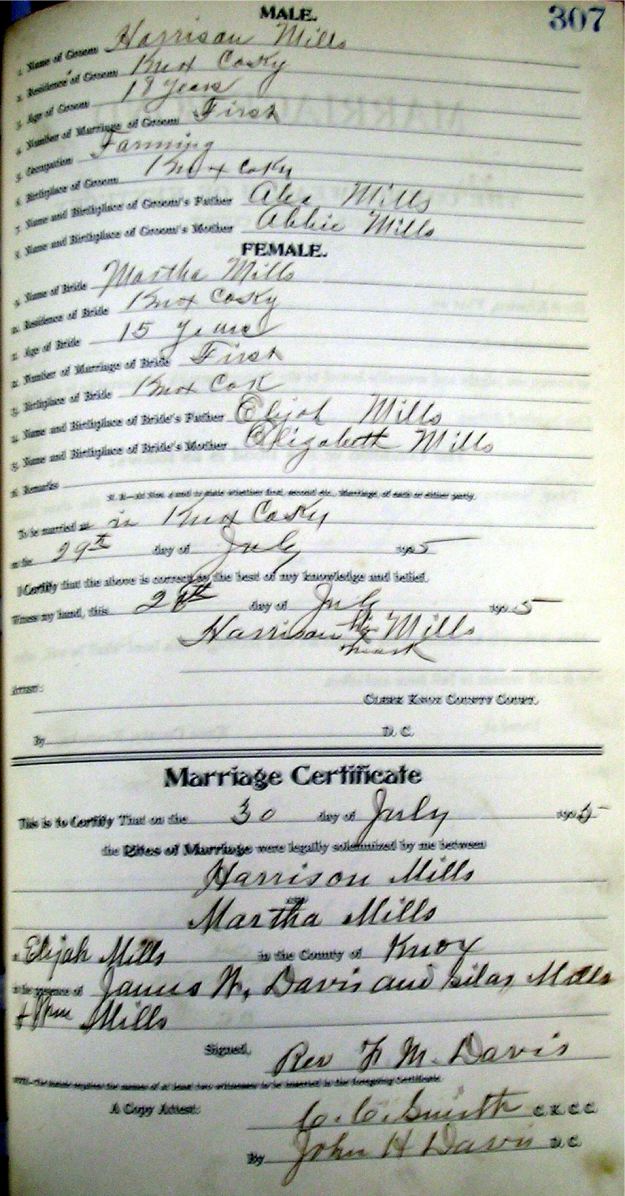 307
MALE.
1. Name of Groom Harrison Mills
2. Residence of Groom Knox Co Ky
3. Age of Groom 18 Years
4. Number of Marriage of Groom First
5. Occupation Farming
6. Birthplace of Groom Knox Co Ky
7. Name and Birthplace of Groom's Father Alex Mills
8. Name and Birthplace of Groom's Mother Abbie Mills
FEMALE.
9. Name of Bride Martha Mills
Residence of Bride Knox Co Ky
Age of Bride 15 Years
Number of Marriage of Bride First
Birthplace of Bride Knox Co K
Name and Birthplace of Bride's Father Elijah Mills
Name and Birthplace of Bride's Mother Elizabeth Mills
Remarks
N. B.—At Nos. 4 and 12 state whether first, second etc., Marriage, of each or either party.
To be married at in Knox Co Ky
on the 29th day of July 1905
I Certify that the above is correct to the best of my knowledge and belief.
Witness my hand, this 28th day of July 1905
Harrison his X mark Mills
Attest:
CLERK KNOX COUNTY COURT.
By D. C.
Marriage Certificate
This is to Certify That on the 30 day of July 1905
the Rites of Marriage were legally solemnized by me between
Harrison Mills
and
Martha Mills
at Elijah Mills in the County of Knox
in the presence of James W. Davis and Silas Mills
+ Wm Mills
Signed, Rev F. M. Davis
NOTE—The statute requires the names of at least two witnesses to be inserted in the foregoing Certificate.
A Copy Attest: C. C. Smith C. K. C. C.
By John H Davis D. C.